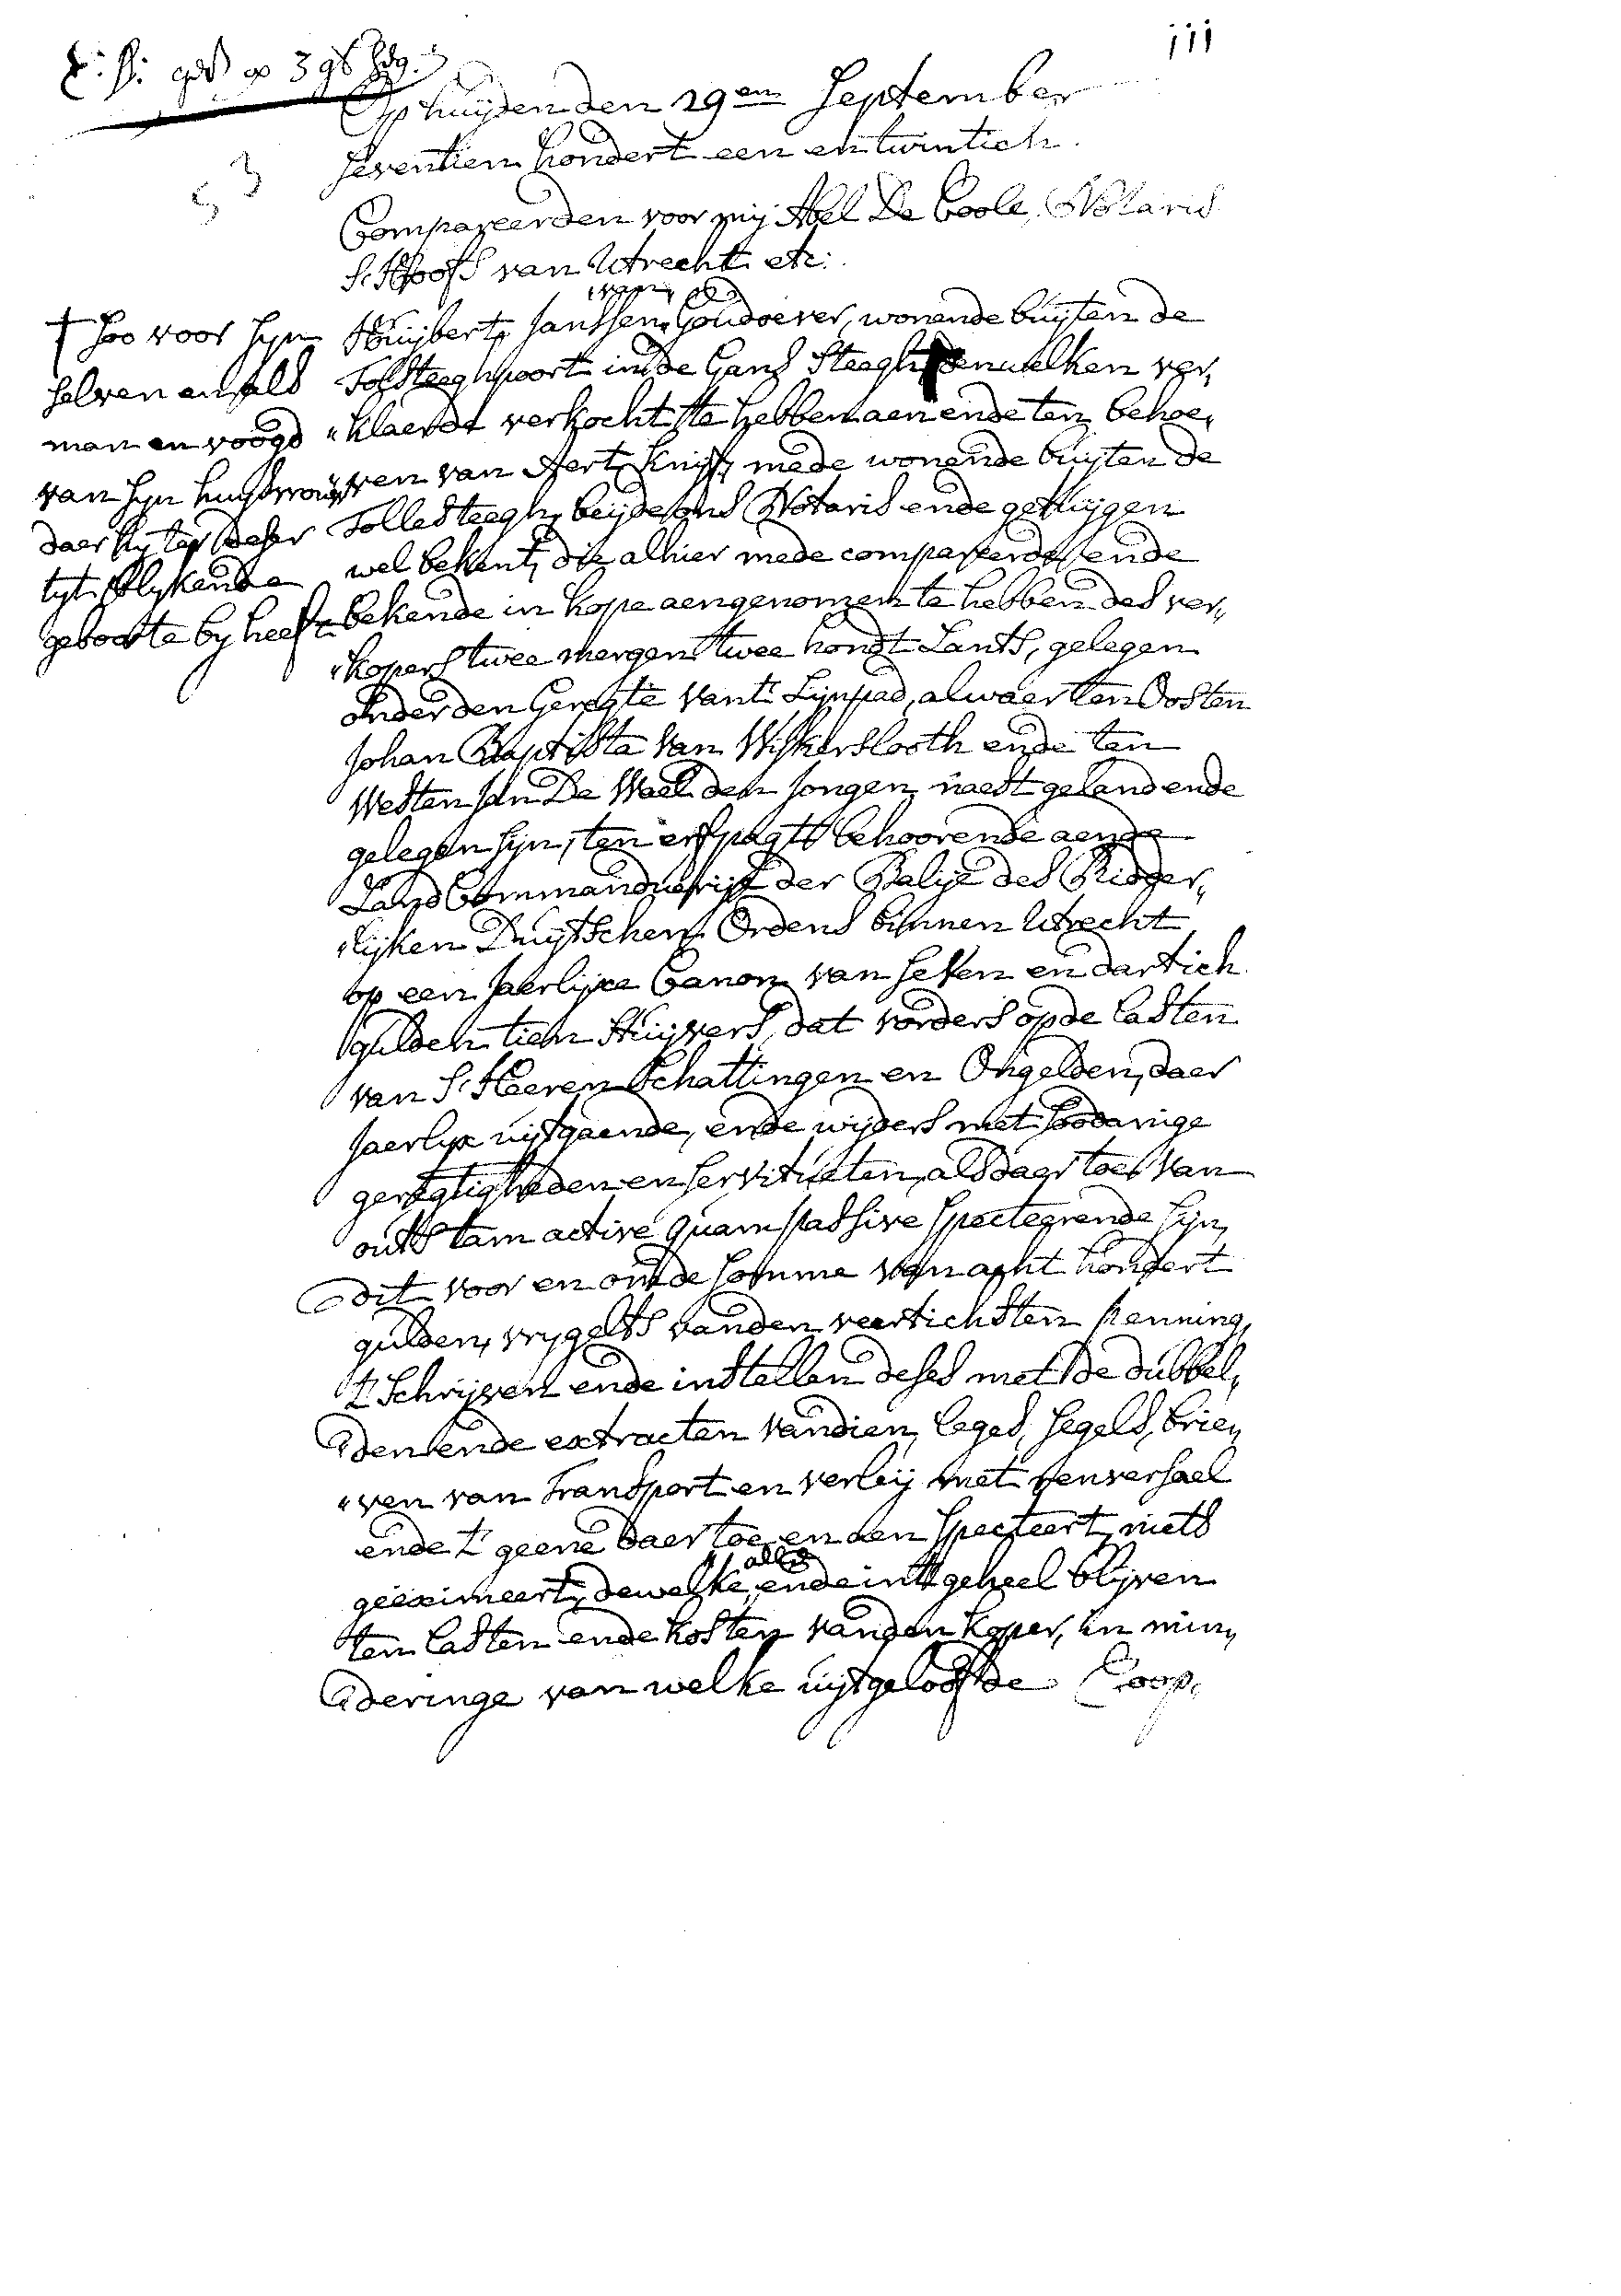 iii
Op huijden den 29en September
seventien hondert een en twintich.
Compareerden voor mij Abel De Coole, Notaris
s. Hoofs van Utrecht etc:
Huijbert Janssen van Goudoever, wonende buijten de
Tolsteeghpoort in de Gans Steegh denwelken ver„
„klaerde verkocht te hebben aen ende ten behoe„
„ven van Aert Knijff, mede wonende buijten de
Tollesteegh, beijde ons Notaris ende getuijgen
wel bekent, die alhier mede compareerde, ende
bekende in kope aengenomen te hebben des ver„
„kopers twee mergen twee hondt Lants, gelegen
onder den Geregte van't Lijnpad, alwaer ten Oosten
Johan Baptista van Wijkerslooth ende ten
Westen Jan De Wael den Jongen naest gelandende
gelegen sijn, ten erfpagt behoorende aende
Land Commandurije der Balije des Ridder„
„lijken Duijtschen Ordens binnen Utrecht
op een Jaerlijxe Canon van seven en dartich
gulden tien stuijvers, dat vorders op de lasten
van s. Heeren Schattingen en Ongelden, daer
Jaerlijx uijtgaende, ende wijders met soodanige
geregtigheden en servituten, als daer toe van
outs tam active quam passive specterende sijn,
dit voor en om de somme van acht hondert
gulden, vrijgelts vanden veertichsten penning,
't Schrijven ende instellen deses met de dubbel„
den ende extracten vandien, leges, segels, brie„
„ven van Transport en verleij met renversael
ende 't geene daer toe en aen specteert, niets
geëximeert, dewelke alle ende in't geheel blijven
ten lasten ende kosten vanden koper, in min„
deringe van welke uijtgeloofde Coop„
† soo voor sijn
selven en als
man en voogd
van sijn huijsvrouw,
daer hij ter deser
tijt blijkende
geboorte bij heeft
53